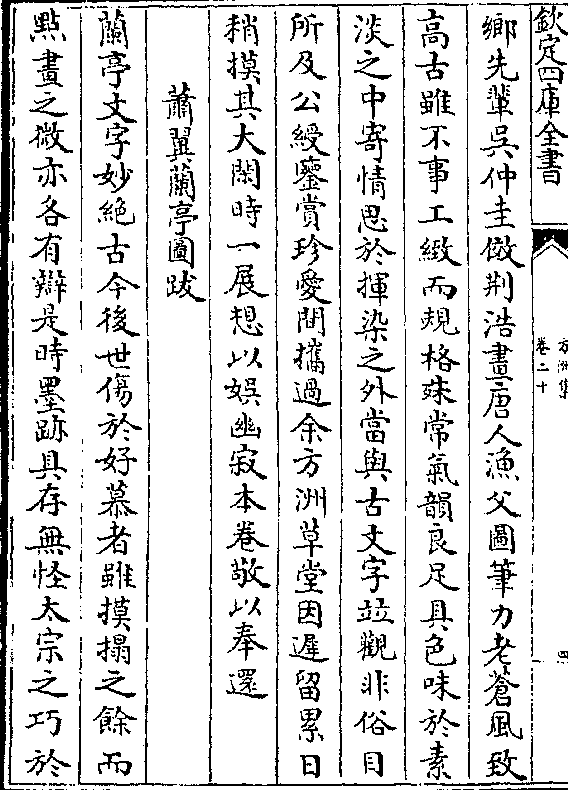 欽定四庫全書
方洲集
卷二十
四
鄉先輩吳仲圭倣荆浩畫唐人漁父圖筆力老蒼風致
高古雖不事工緻而規格殊常氣韻良足具色味於素
淡之中寄情思於揮染之外當與古文字竝觀非俗目
所及公綬鑒賞珍愛間攜過余方洲草堂因遲留累日
稍摸其大閑時一展想以娛幽寂本卷敬以奉還
蕭翼蘭亭圖跋
蘭亭文字妙絶古今後世傷於好慕者雖摸搨之餘而
點畫之微亦各有辯是時墨跡具存無怪太宗之巧於